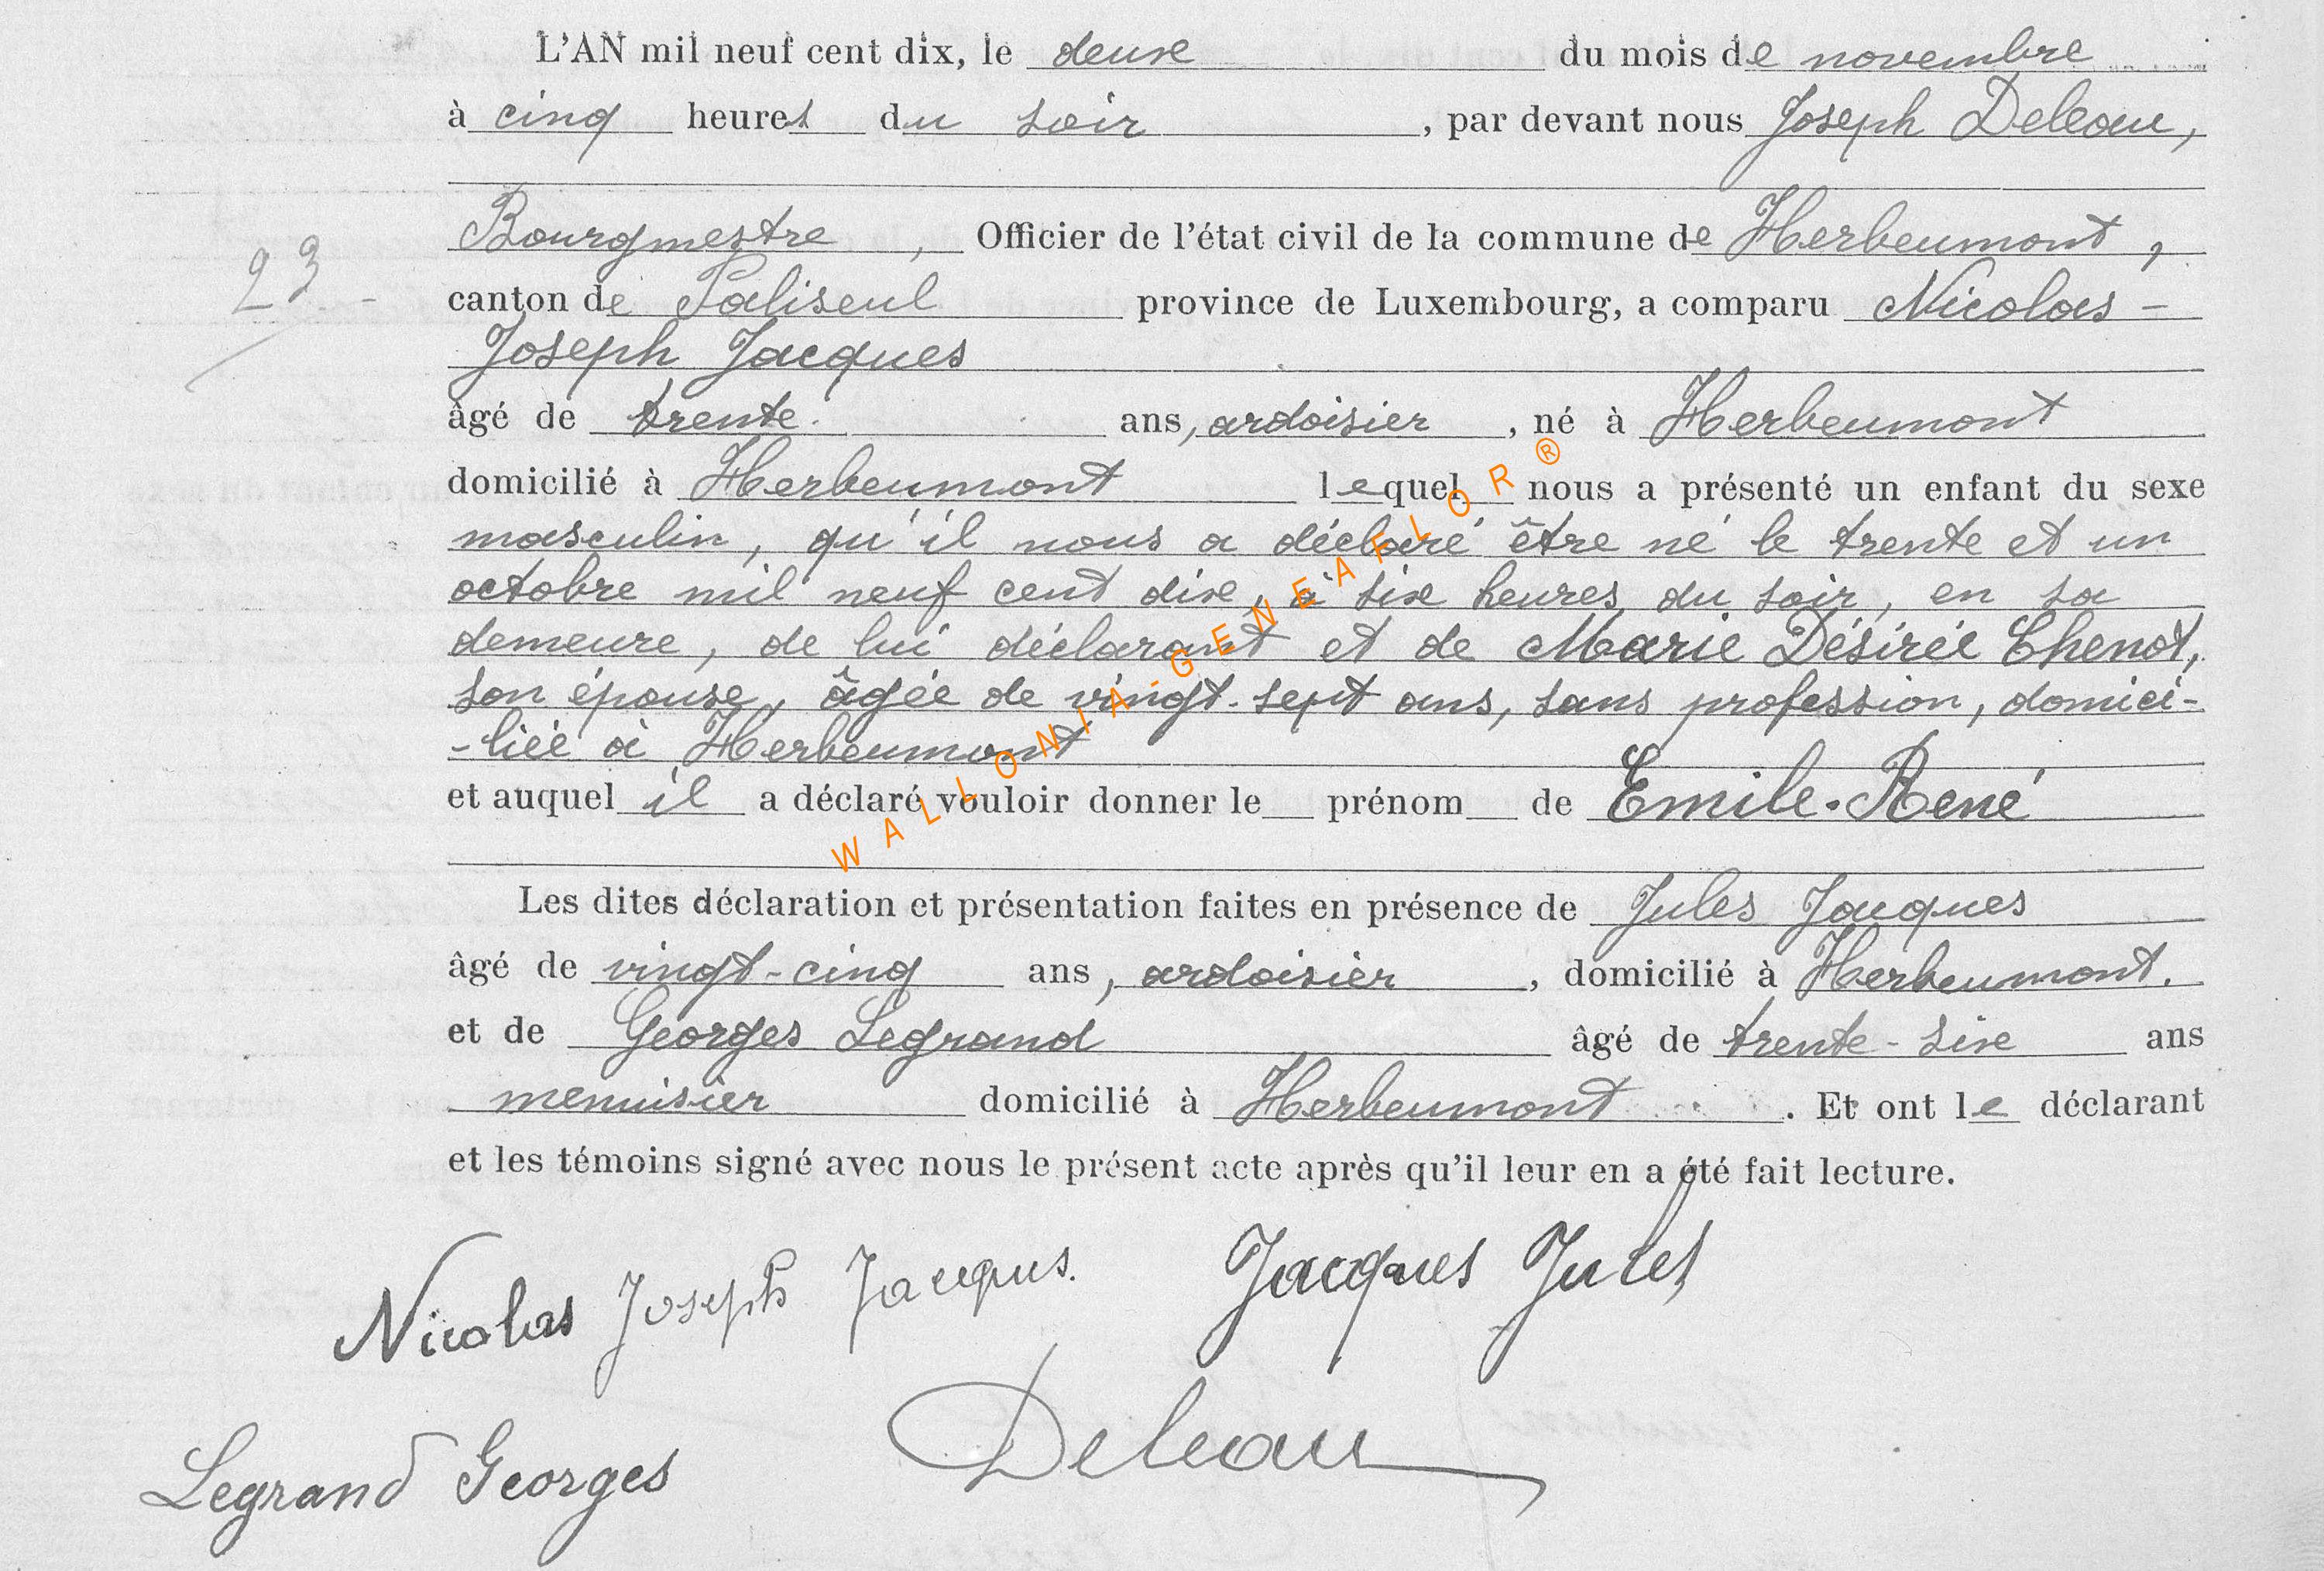 L'AN mil neuf cent dix, le deux du mois de novembre
à cinq heures du soir, par devant nous Joseph Deleau,
Bourgmestre, Officier de l'état civil de la commune de Herbeumont,
23
canton de Paliseul province de Luxembourg, a comparu Nicolas-
Joseph Jacques
âgé de trente ans, ardoisier, né à Herbeumont
domicilié à Herbeumont lequel nous a présenté un enfant du sexe
masculin, qu'il nous a déclaré être né le trente et un
octobre mil neuf cent dix, à six heures du soir, en sa
demeure, de lui déclarant et de Marie Désirée Chenot,
son épouse, âgée de vingt-sept ans, sans profession, domici-
-liée à Herbeumont
et auquel il a déclaré vouloir donner le prénom de Emile-René
WALLONIA-GENEAFLOR®
Les dites déclaration et présentation faites en présence de Jules Jacques
âgé de vingt-cinq ans, ardoisier, domicilié à Herbeumont.
et de Georges Legrand âgé de trente-six ans
menuisier domicilié à Herbeumont. Et ont le déclarant
et les témoins signé avec nous le présent acte après qu'il leur en a été fait lecture.
Nicolas Joseph Jacques. Jacques Jules
Legrand Georges Deleau